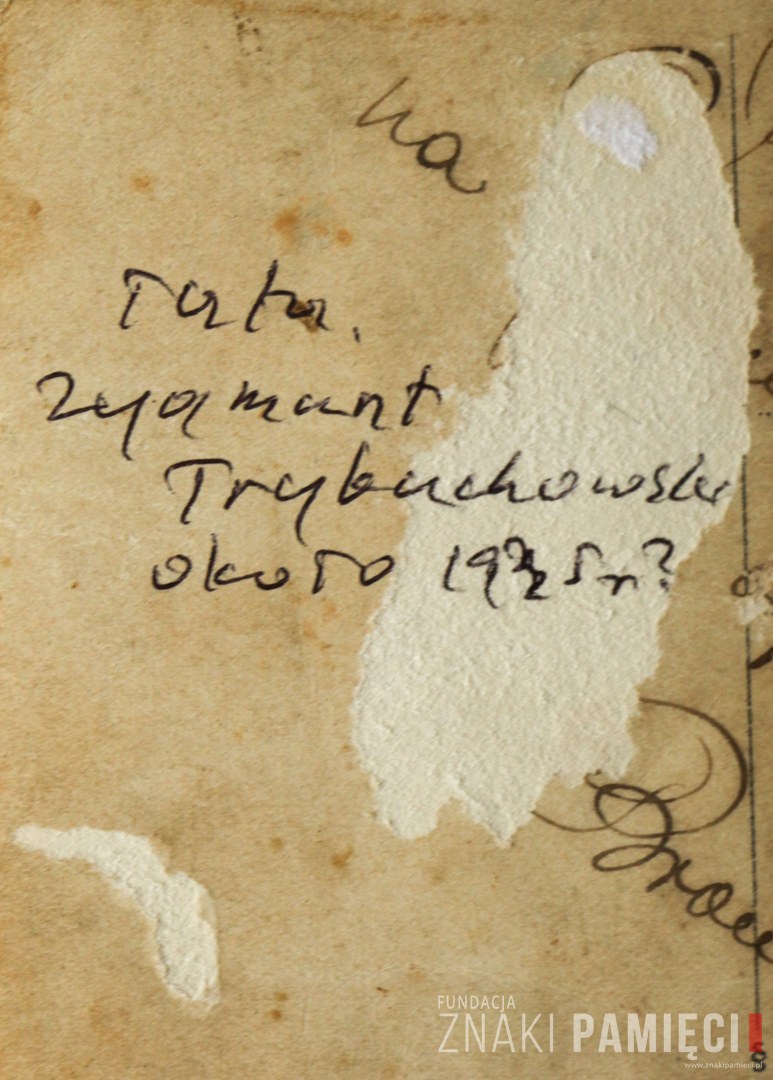 na
Tata.
Zygmunt
Trybuchowski
około 1925 r?
FUNDACJA
ZNAKI PAMIĘCI
www.znakipamieci.pl